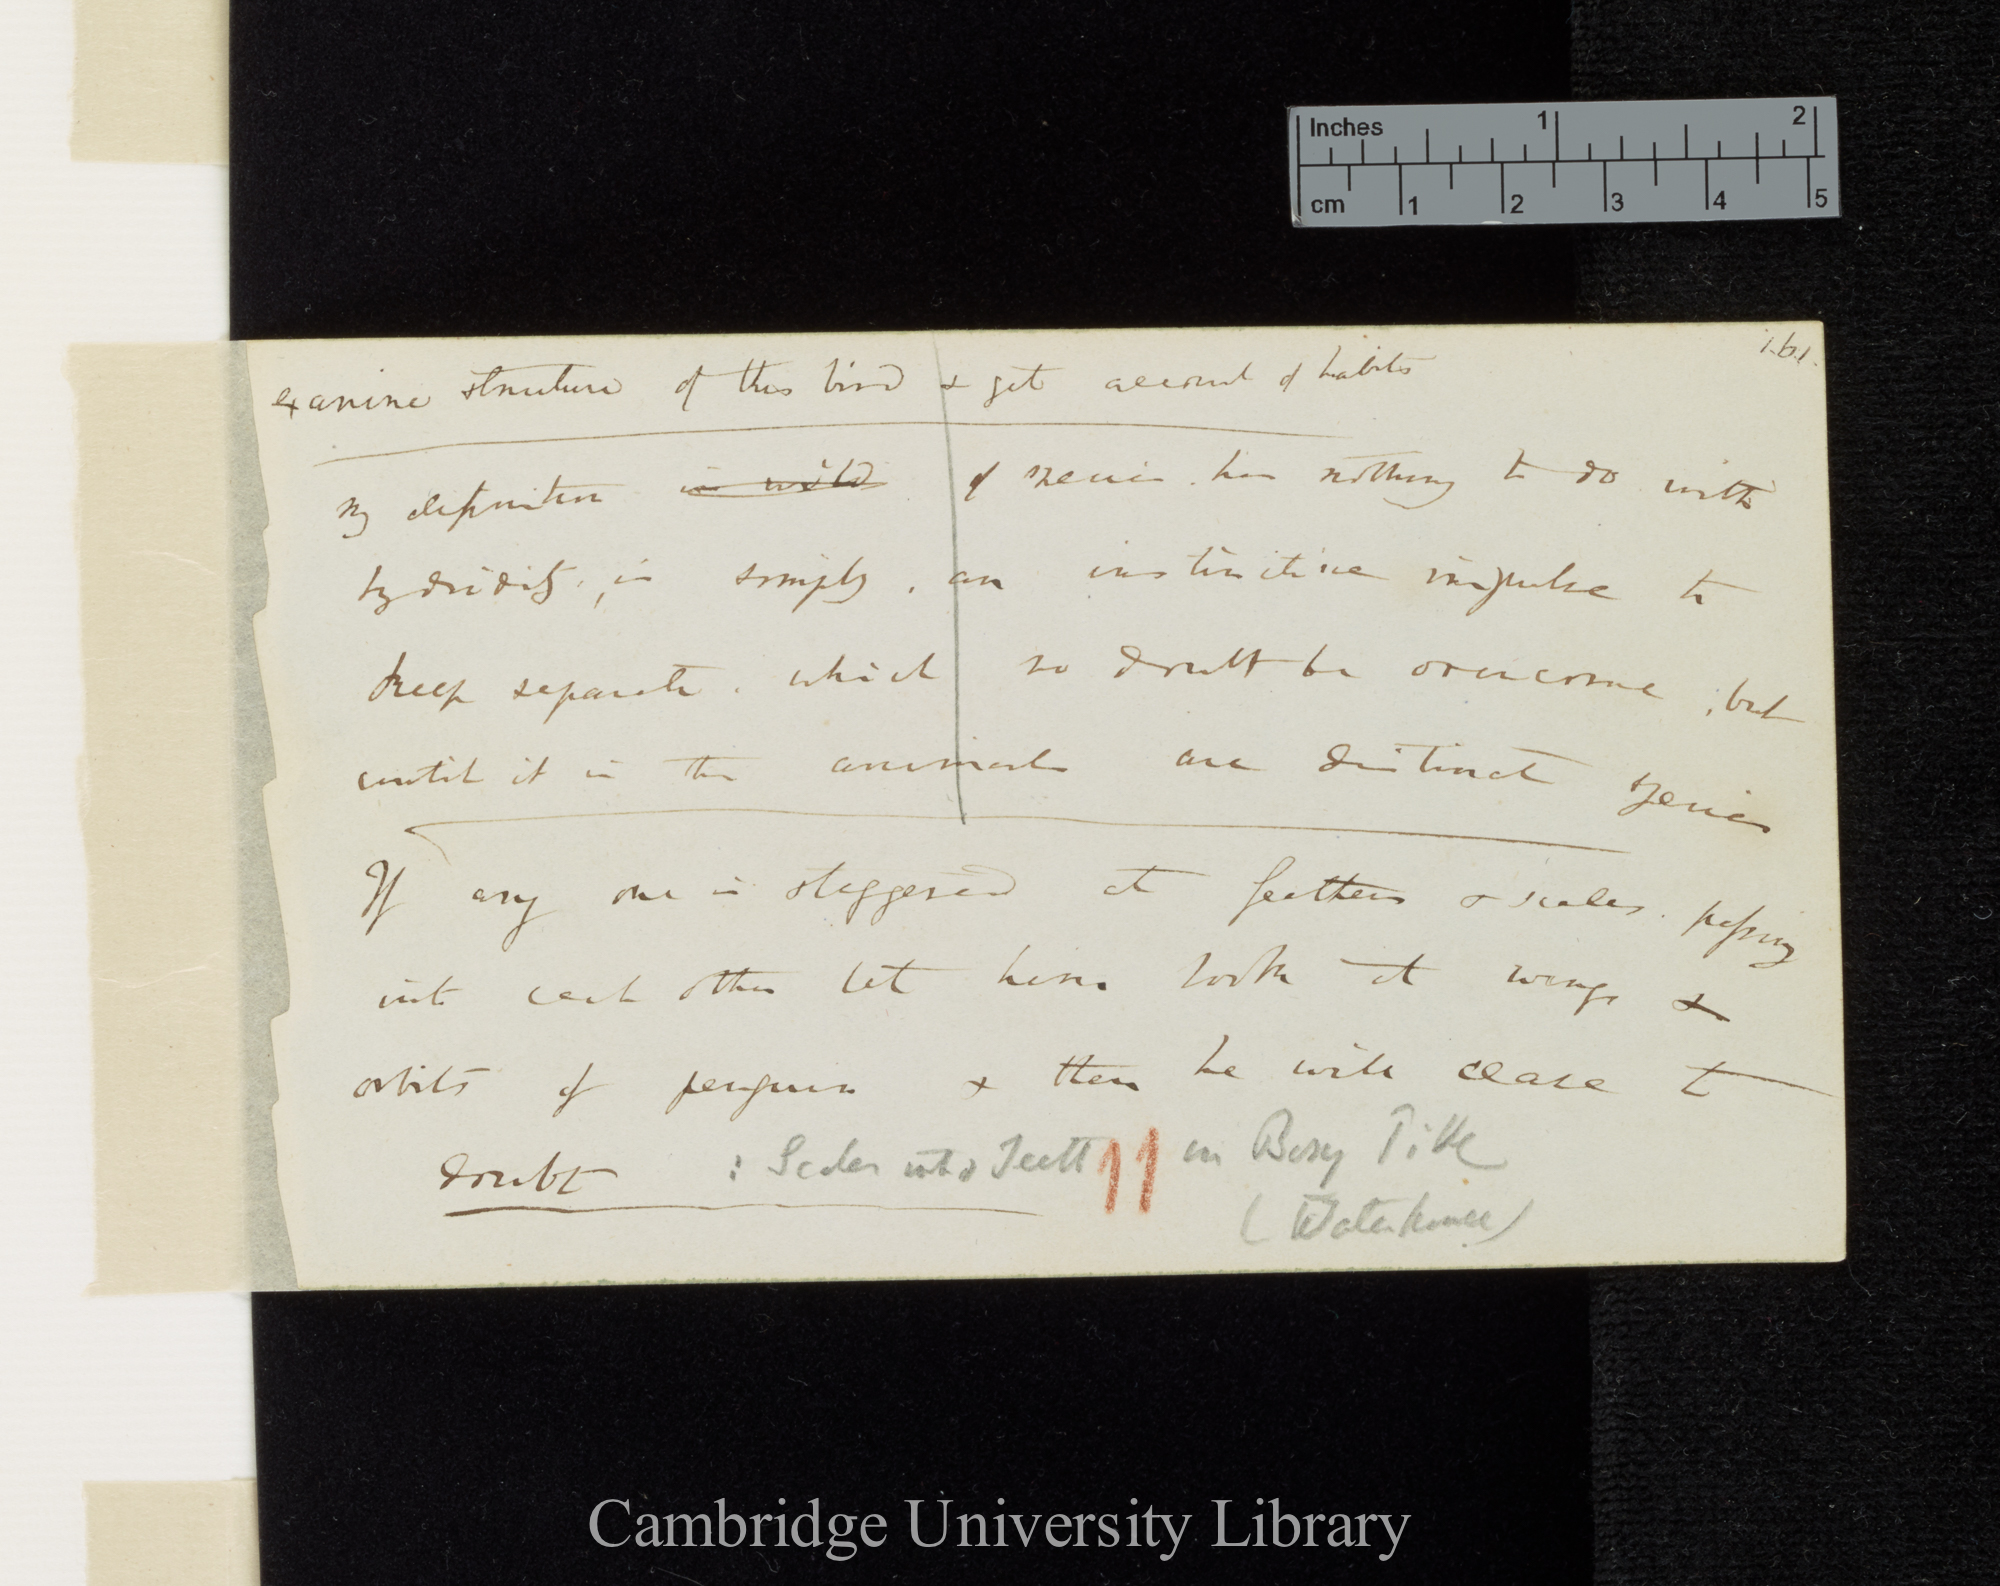 Inches 1 2
cm 1 2 3 4 5
examine structure of this bird & get account of habits
My definition in wild of species. has nothing to do with
hybridity, is simply, an instinctive impulse to
keep separate, which no doubt be overcome, but
until it is the animals are distinct species
If any one is staggered at feathers & scales. passing
into each other let him look at wings &
orbits of penguin & then he will cease to
doubt : Scales into Teeth in Bony Pike
(Waterhouse)
Cambridge University Library